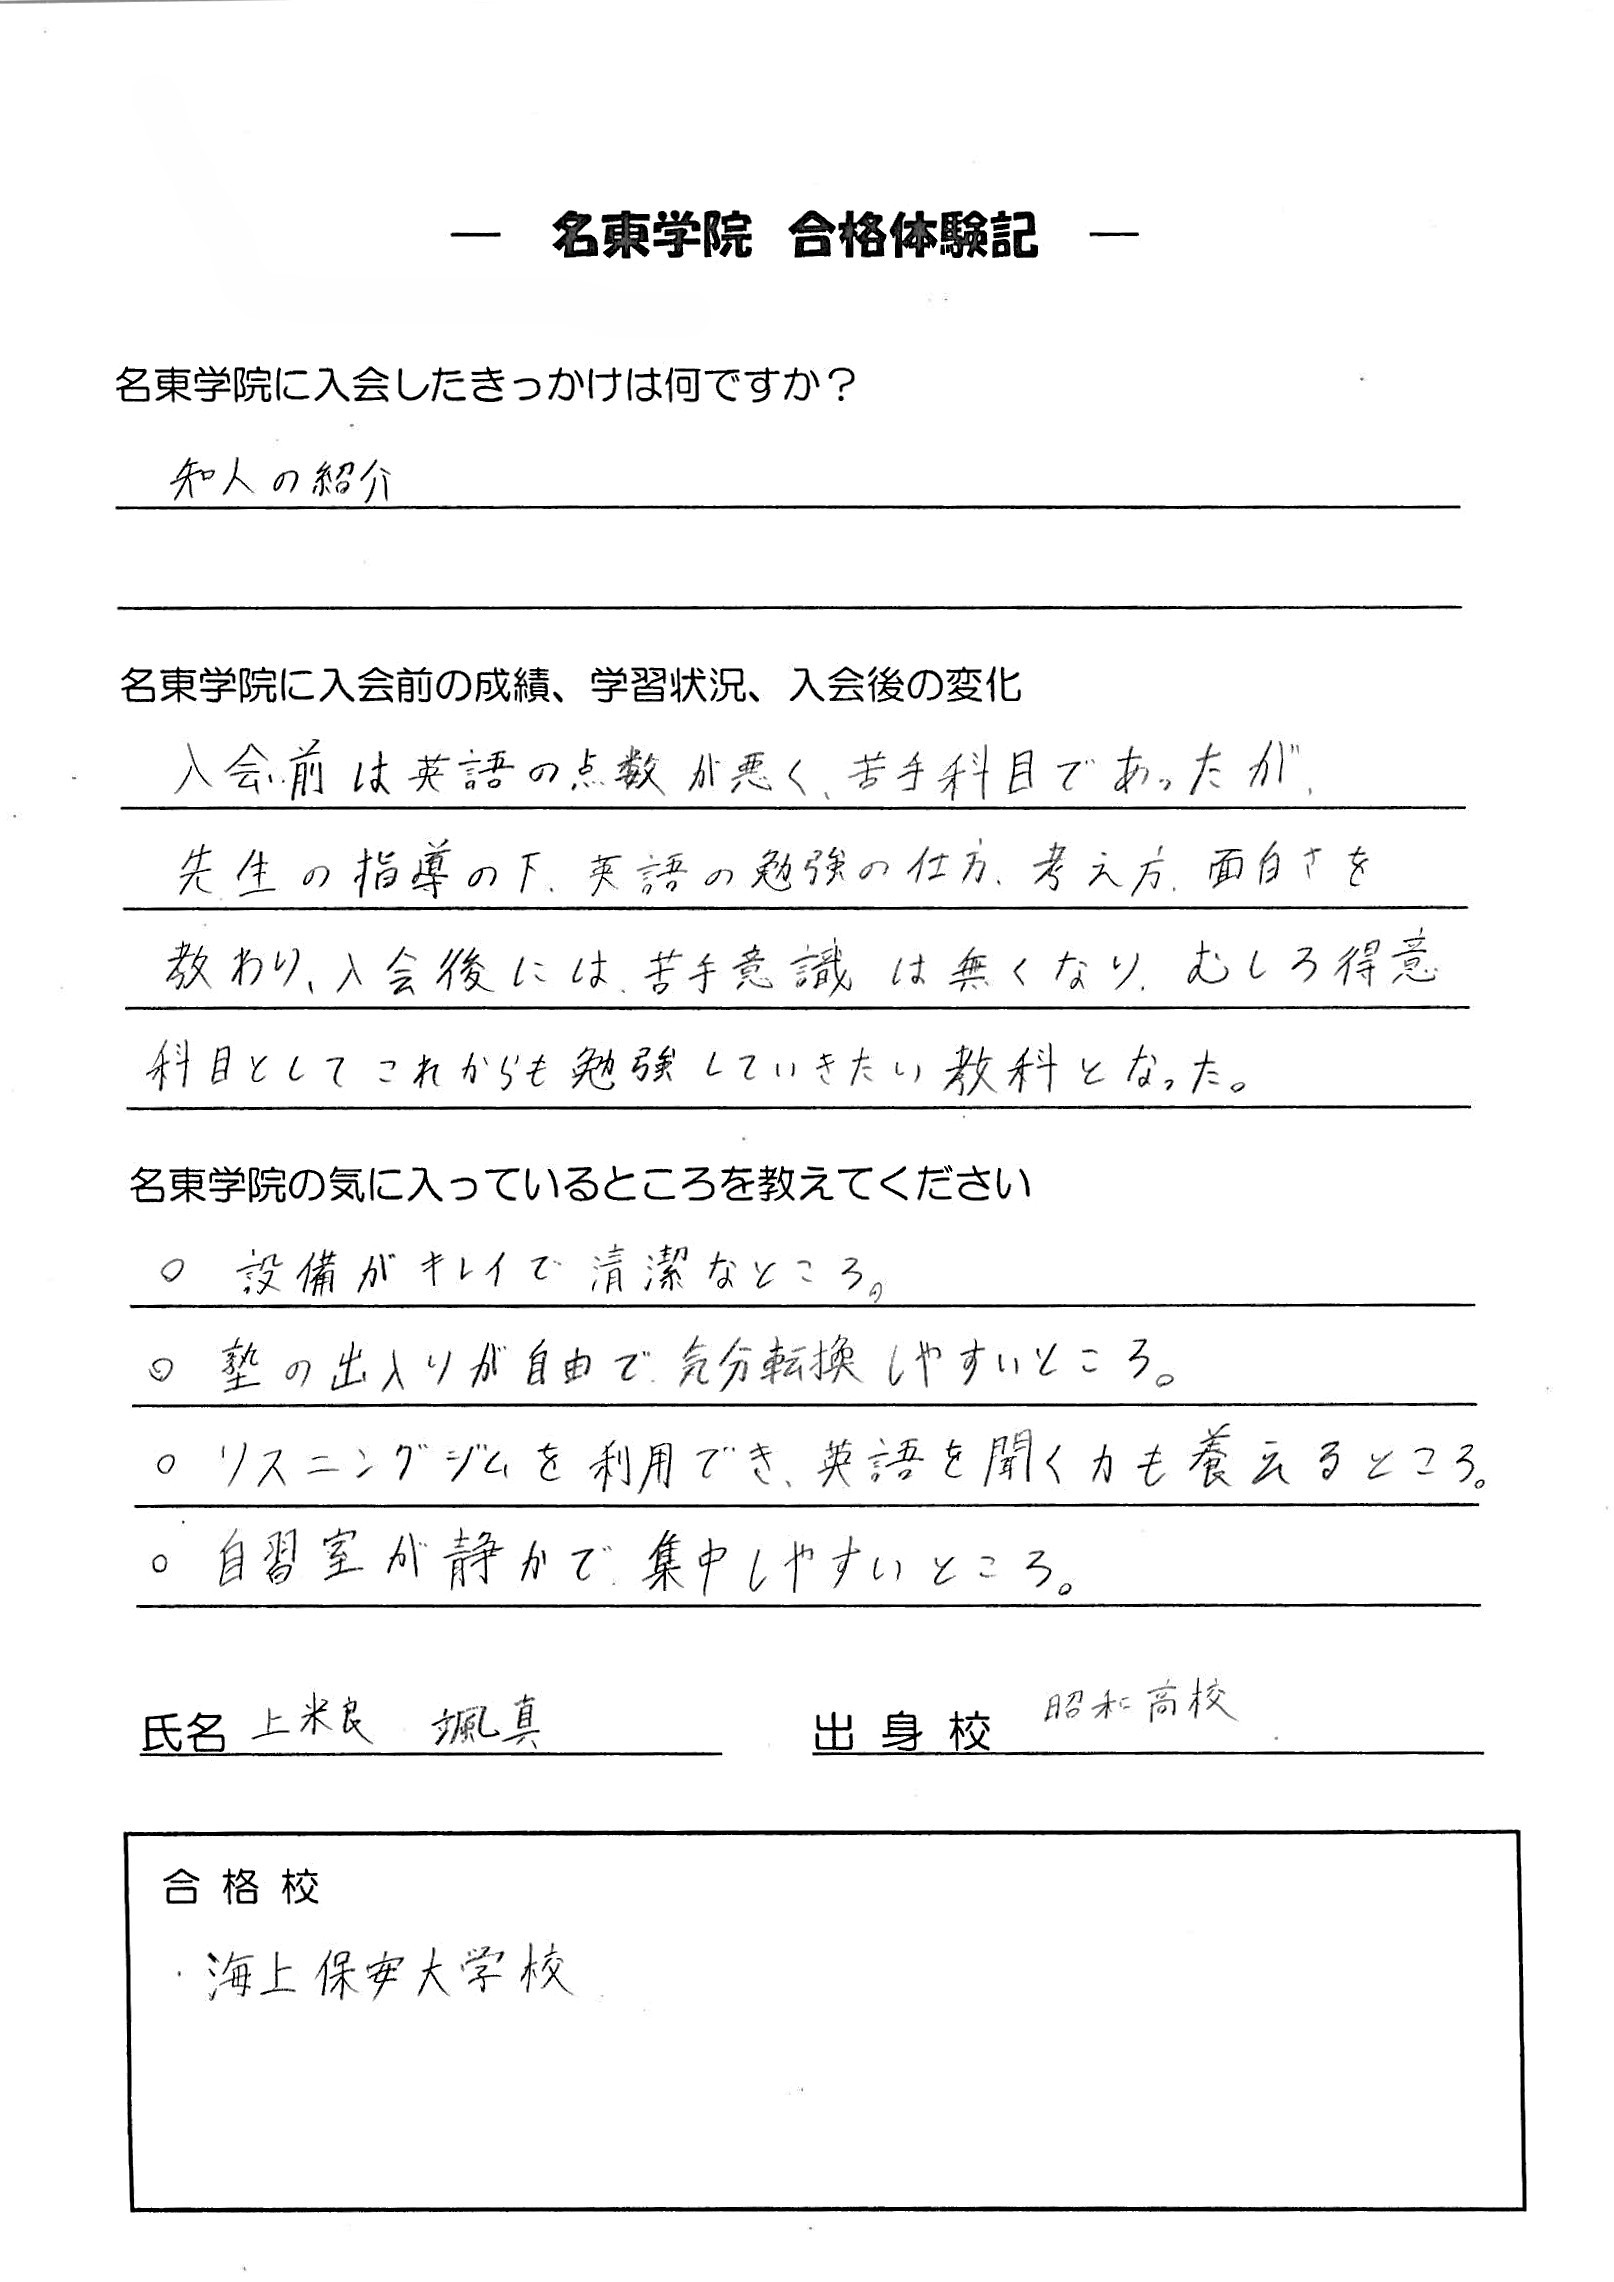 ― 名東学院 合格体験記 ―
名東学院に入会したきっかけは何ですか？
知人の紹介
名東学院に入会前の成績、学習状況、入会後の変化
入会前は英語の点数が悪く、苦手科目であったが、
先生の指導の下、英語の勉強の仕方、考え方、面白さを
教わり、入会後には、苦手意識は無くなり、むしろ得意
科目としてこれからも勉強していきたい教科となった。
名東学院の気に入っているところを教えてください
○ 設備がキレイで清潔なところ。
○ 塾の出入りが自由で、気分転換しやすいところ。
○ リスニングジムを利用でき、英語を聞く力も養えるところ。
○ 自習室が静かで、集中しやすいところ。
氏名 上米良 颯真 出身校 昭和高校
合格校
・海上保安大学校